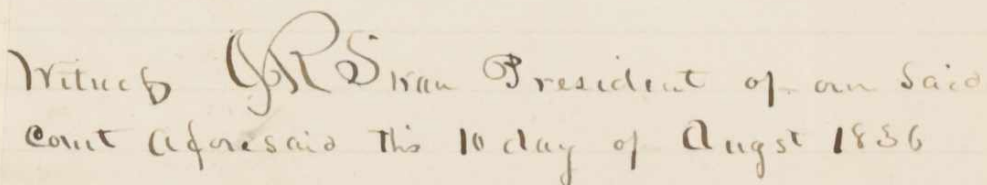 Witness J R Swan President of our Said
Court aforesaid this 10 day of Augst 1836